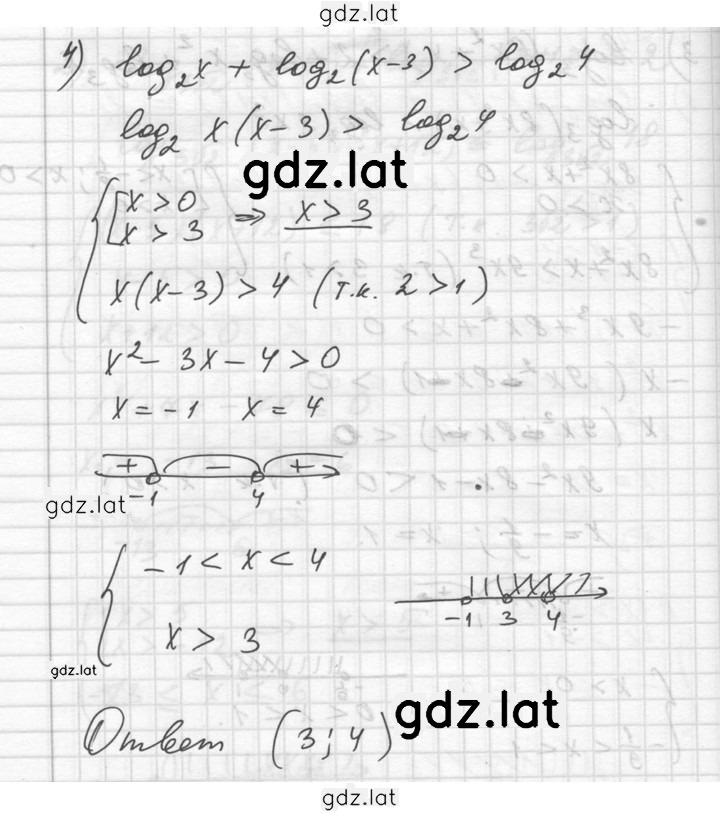 gdz.lat
4) log₂x + log₂(x-3) > log₂4
log₂ x(x-3) > log₂4
gdz.lat
x > 0
x > 3 ⇒ x > 3
x(x-3) > 4 (т.к. 2 > 1)
x² - 3x - 4 > 0
x = -1 x = 4
+ - +
-1 4
gdz.lat
-1 < x < 4
x > 3
-1 3 4
gdz.lat
Ответ (3; 4)
gdz.lat
gdz.lat